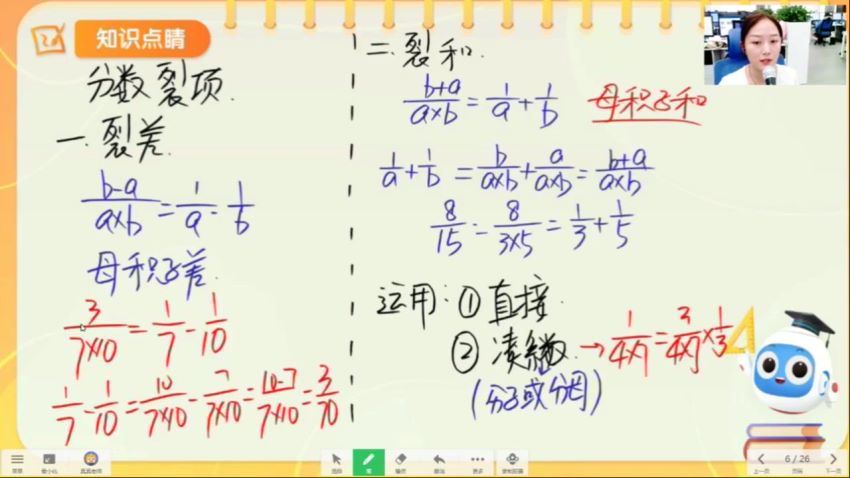 知识点睛
分数裂项.
一.裂差.
b-a/a×b=1/a-1/b
母积子差.
3/7×10=1/7-1/10
1/7-1/10=10/7×10-7/7×10=10-7/7×10=3/70
二.裂和.
b+a/a×b=1/a+1/b 母积子和
1/a+1/b=b/a×b+a/a×b=b+a/a×b
8/15=8/3×5=1/3+1/5
运用:①直接.
②凑系数.→1/4×7=3/4×7×1/3
(分子或分母)
菜单
最小化
选择
笔
橡皮
撤销
更多
上一页
6 / 26
下一页